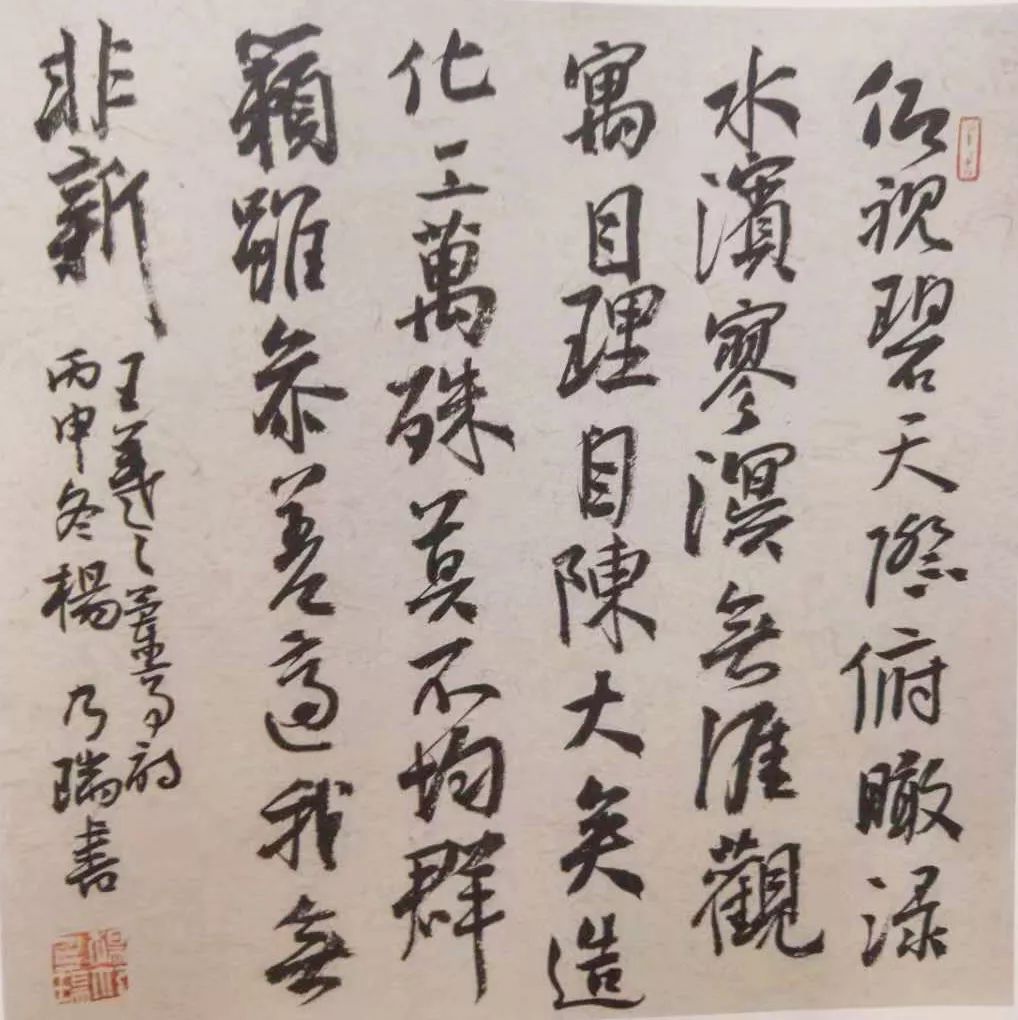 仰視碧天際俯瞰渌
水濱寥溟無涯觀
寓目理自陳大矣造
化工萬殊莫不均群
籟雖參差適我無
非新
王羲之蘭亭詩
丙申冬楊乃瑞書